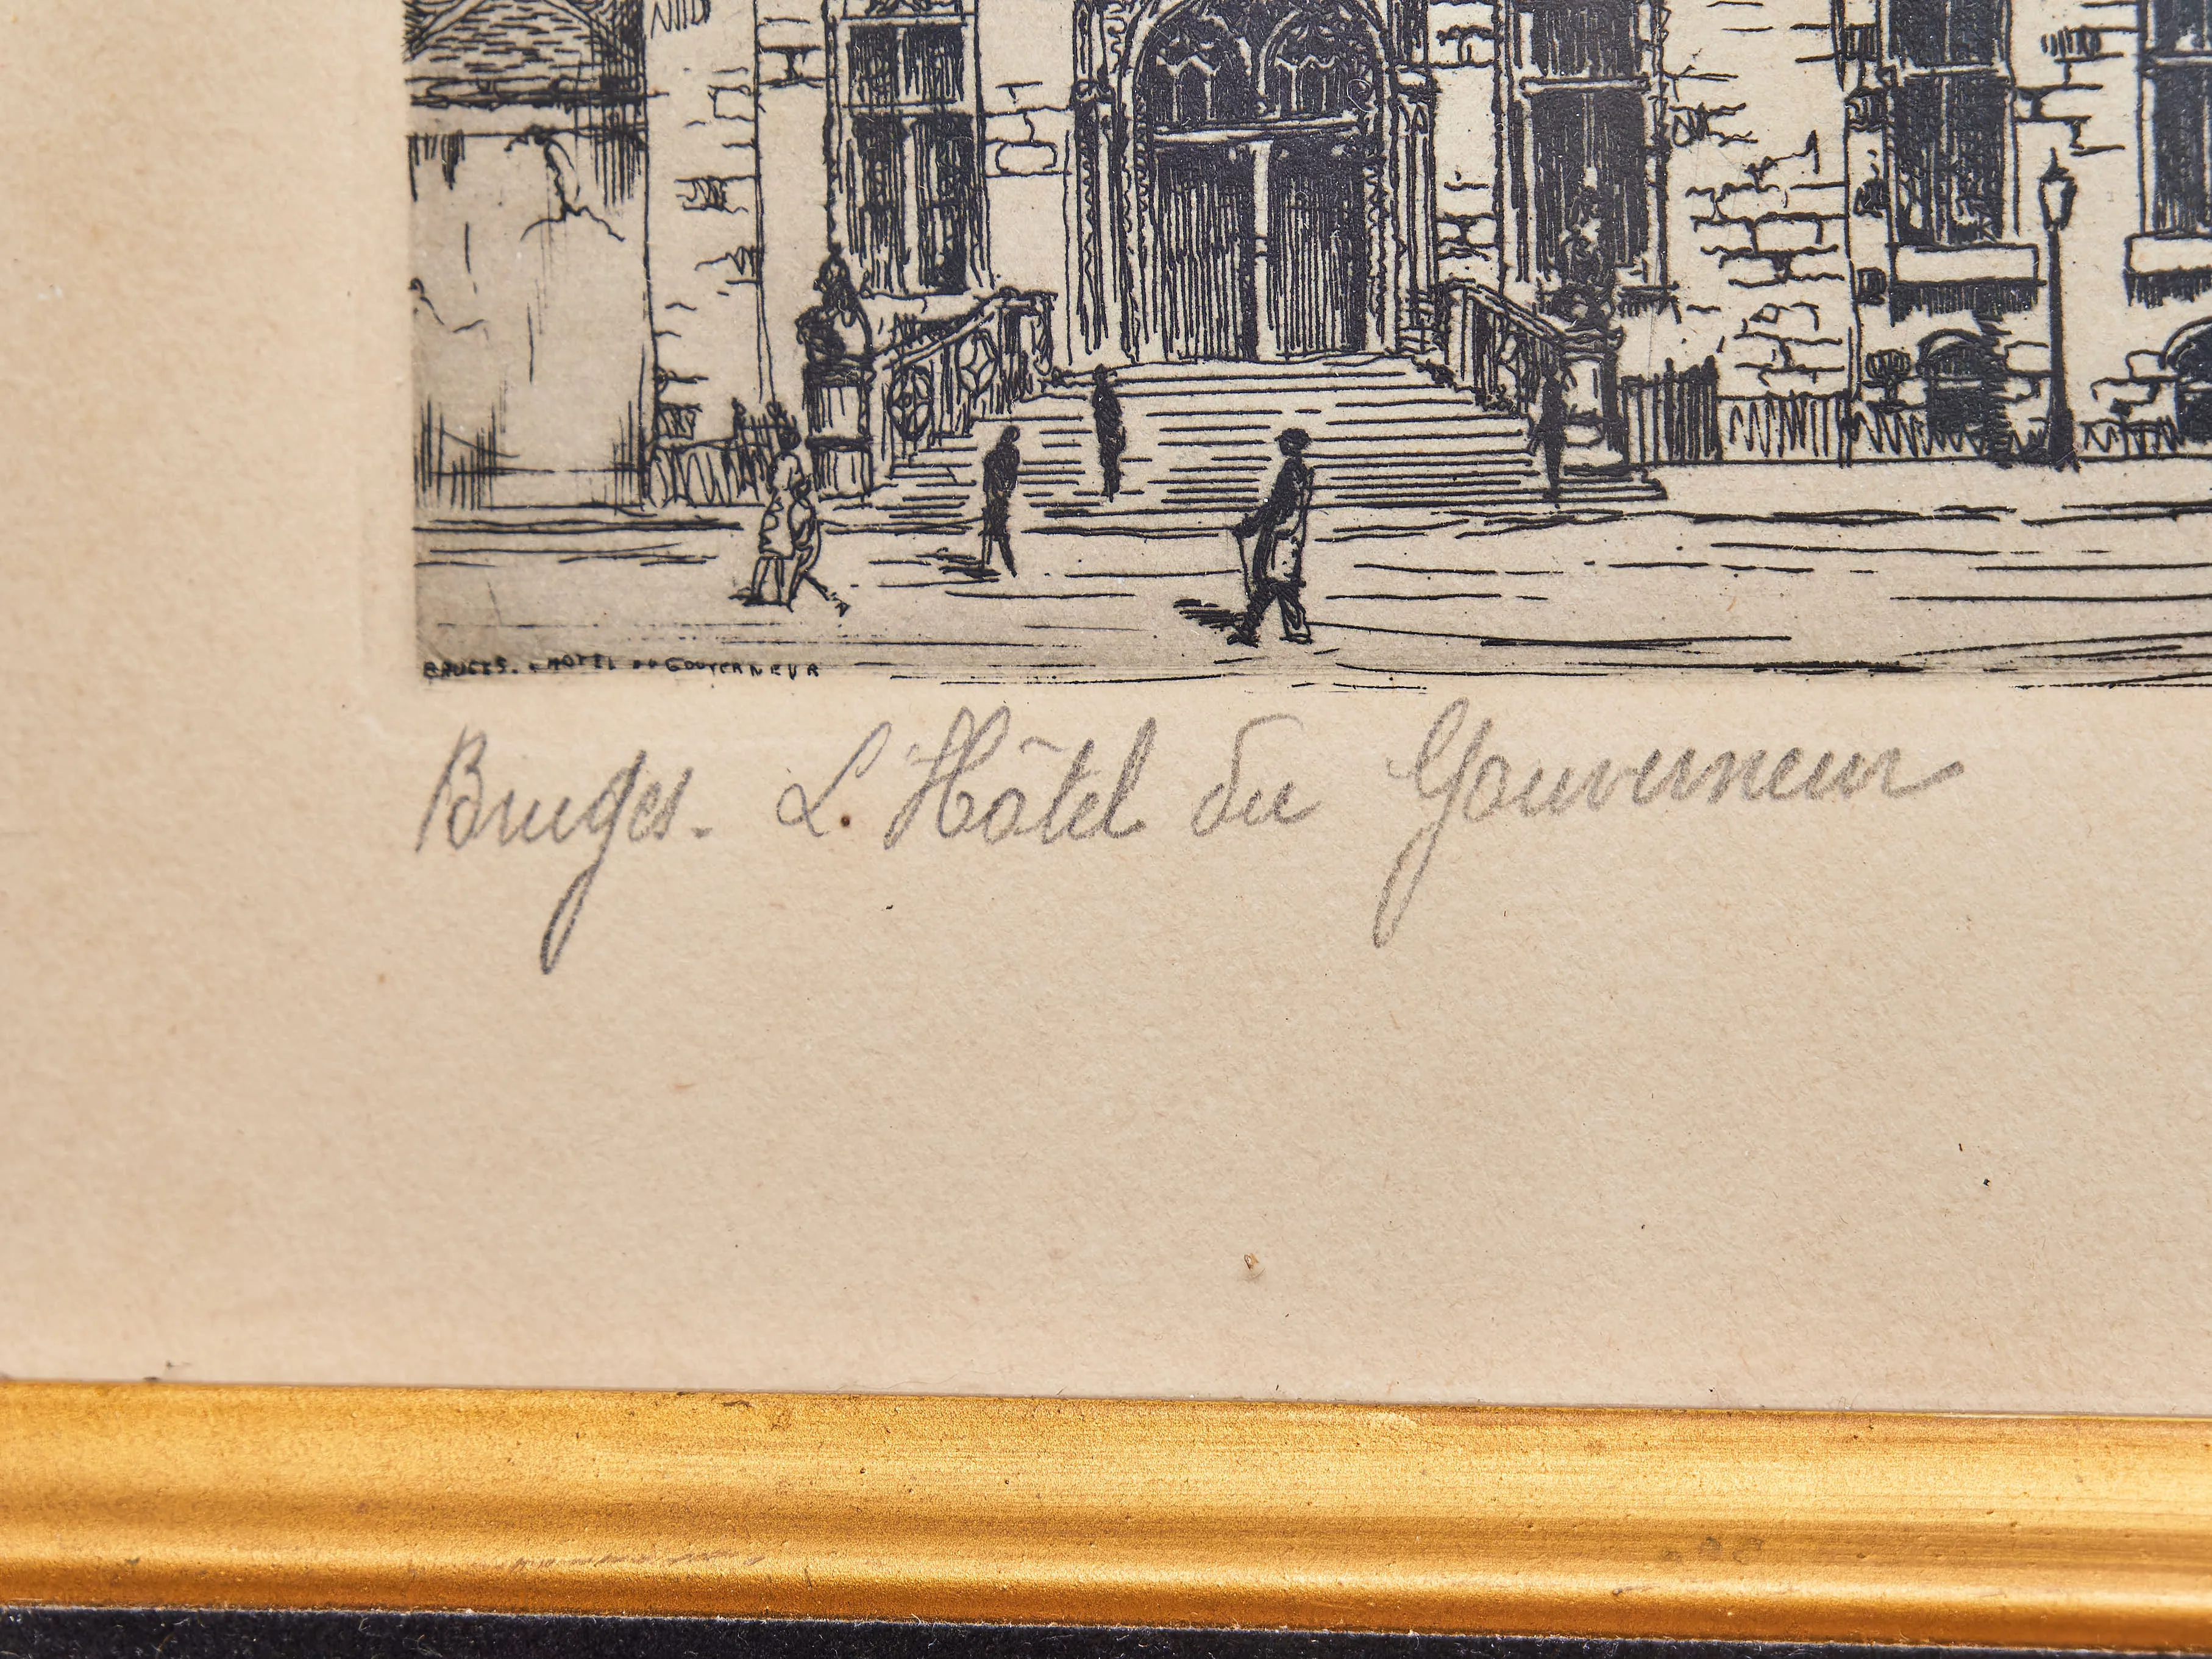 BRUGES. - HOTEL DU GOUVERNEUR
Bruges. L'Hôtel du Gouverneur